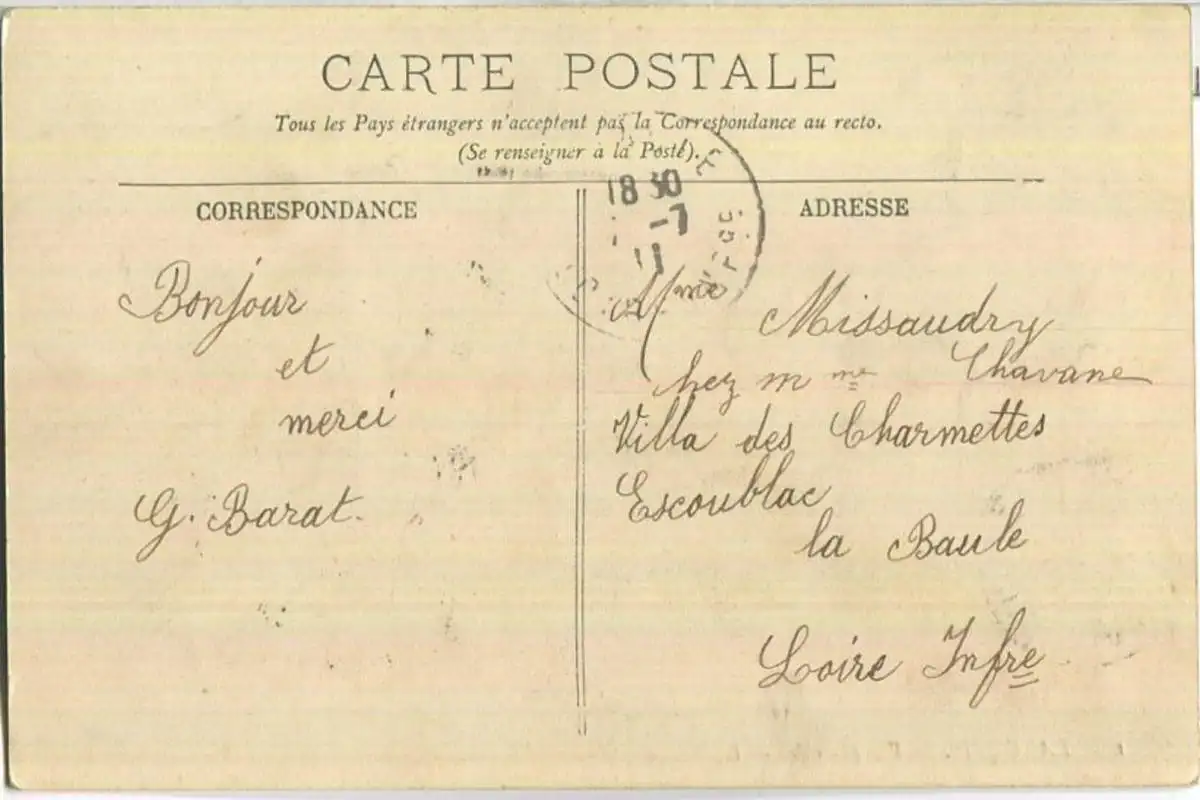 CARTE POSTALE
Tous les Pays étrangers n'acceptent pas la Correspondance au recto.
(Se renseigner à la Poste).
CORRESPONDANCE
Bonjour
et
merci
G. Barat.
18 30
-7
11
ADRESSE
Mme Missaudry
chez mme Chavane
Villa des Charmettes
Escoublac
la Baule
Loire Infre